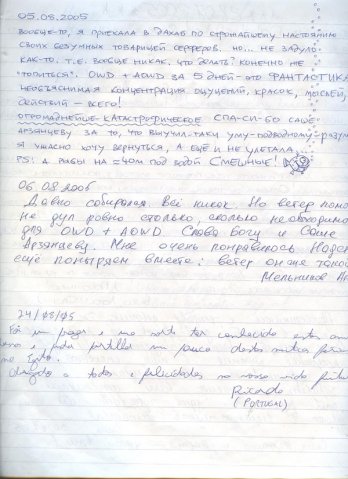 05.08.2005
Вообще-то, я приехала в Дахаб по строжайшему настоянию
своих безумных товарищей серферов. Но... не задуло
как-то. Т.е. вообще никак. Что делать? Конечно же
"топиться". OWD + AOWD за 5 дней - это ФАНТАСТИКА
необъяснимая концентрация ощущений, красок, мыслей,
действий — всего!
Огромаднейше-катастрофическое СПА-СИ-БО Саше
Арзянцеву за то, что выучил-таки уму-подводному-разум
я ужасно хочу вернуться, а ещё и не улетала.
PS: А рыбы на ≈40м под водой смешные!
06.08.2005
Давно собирался Всё никак. Но ветер помо
не дул ровно столько, сколько необходимо
для OWD + AOWD. Слава Богу и Саше
Арзянцеву. Мне очень понравилось. Надею
ещё поныряем вместе: ветер он же такой
Мельников
24/08/05
Foi um prazer e uma sorte ter conhecido estes
e poder partilhar um pouco destas
no Egipto.
Obrigado a todos e felicidades na vossa vida
Ricardo
(PORTUGAL)